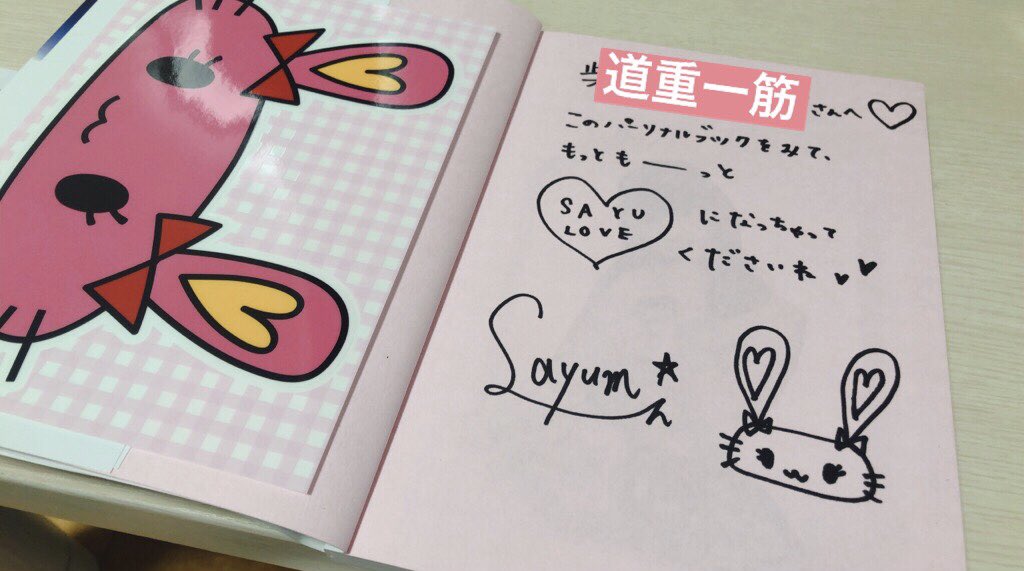 道重一筋
さんへ
このパーソナルブックをみて、
もっとも――っと
SAYU
LOVE
になっちゃって
くださいね
Sayumん